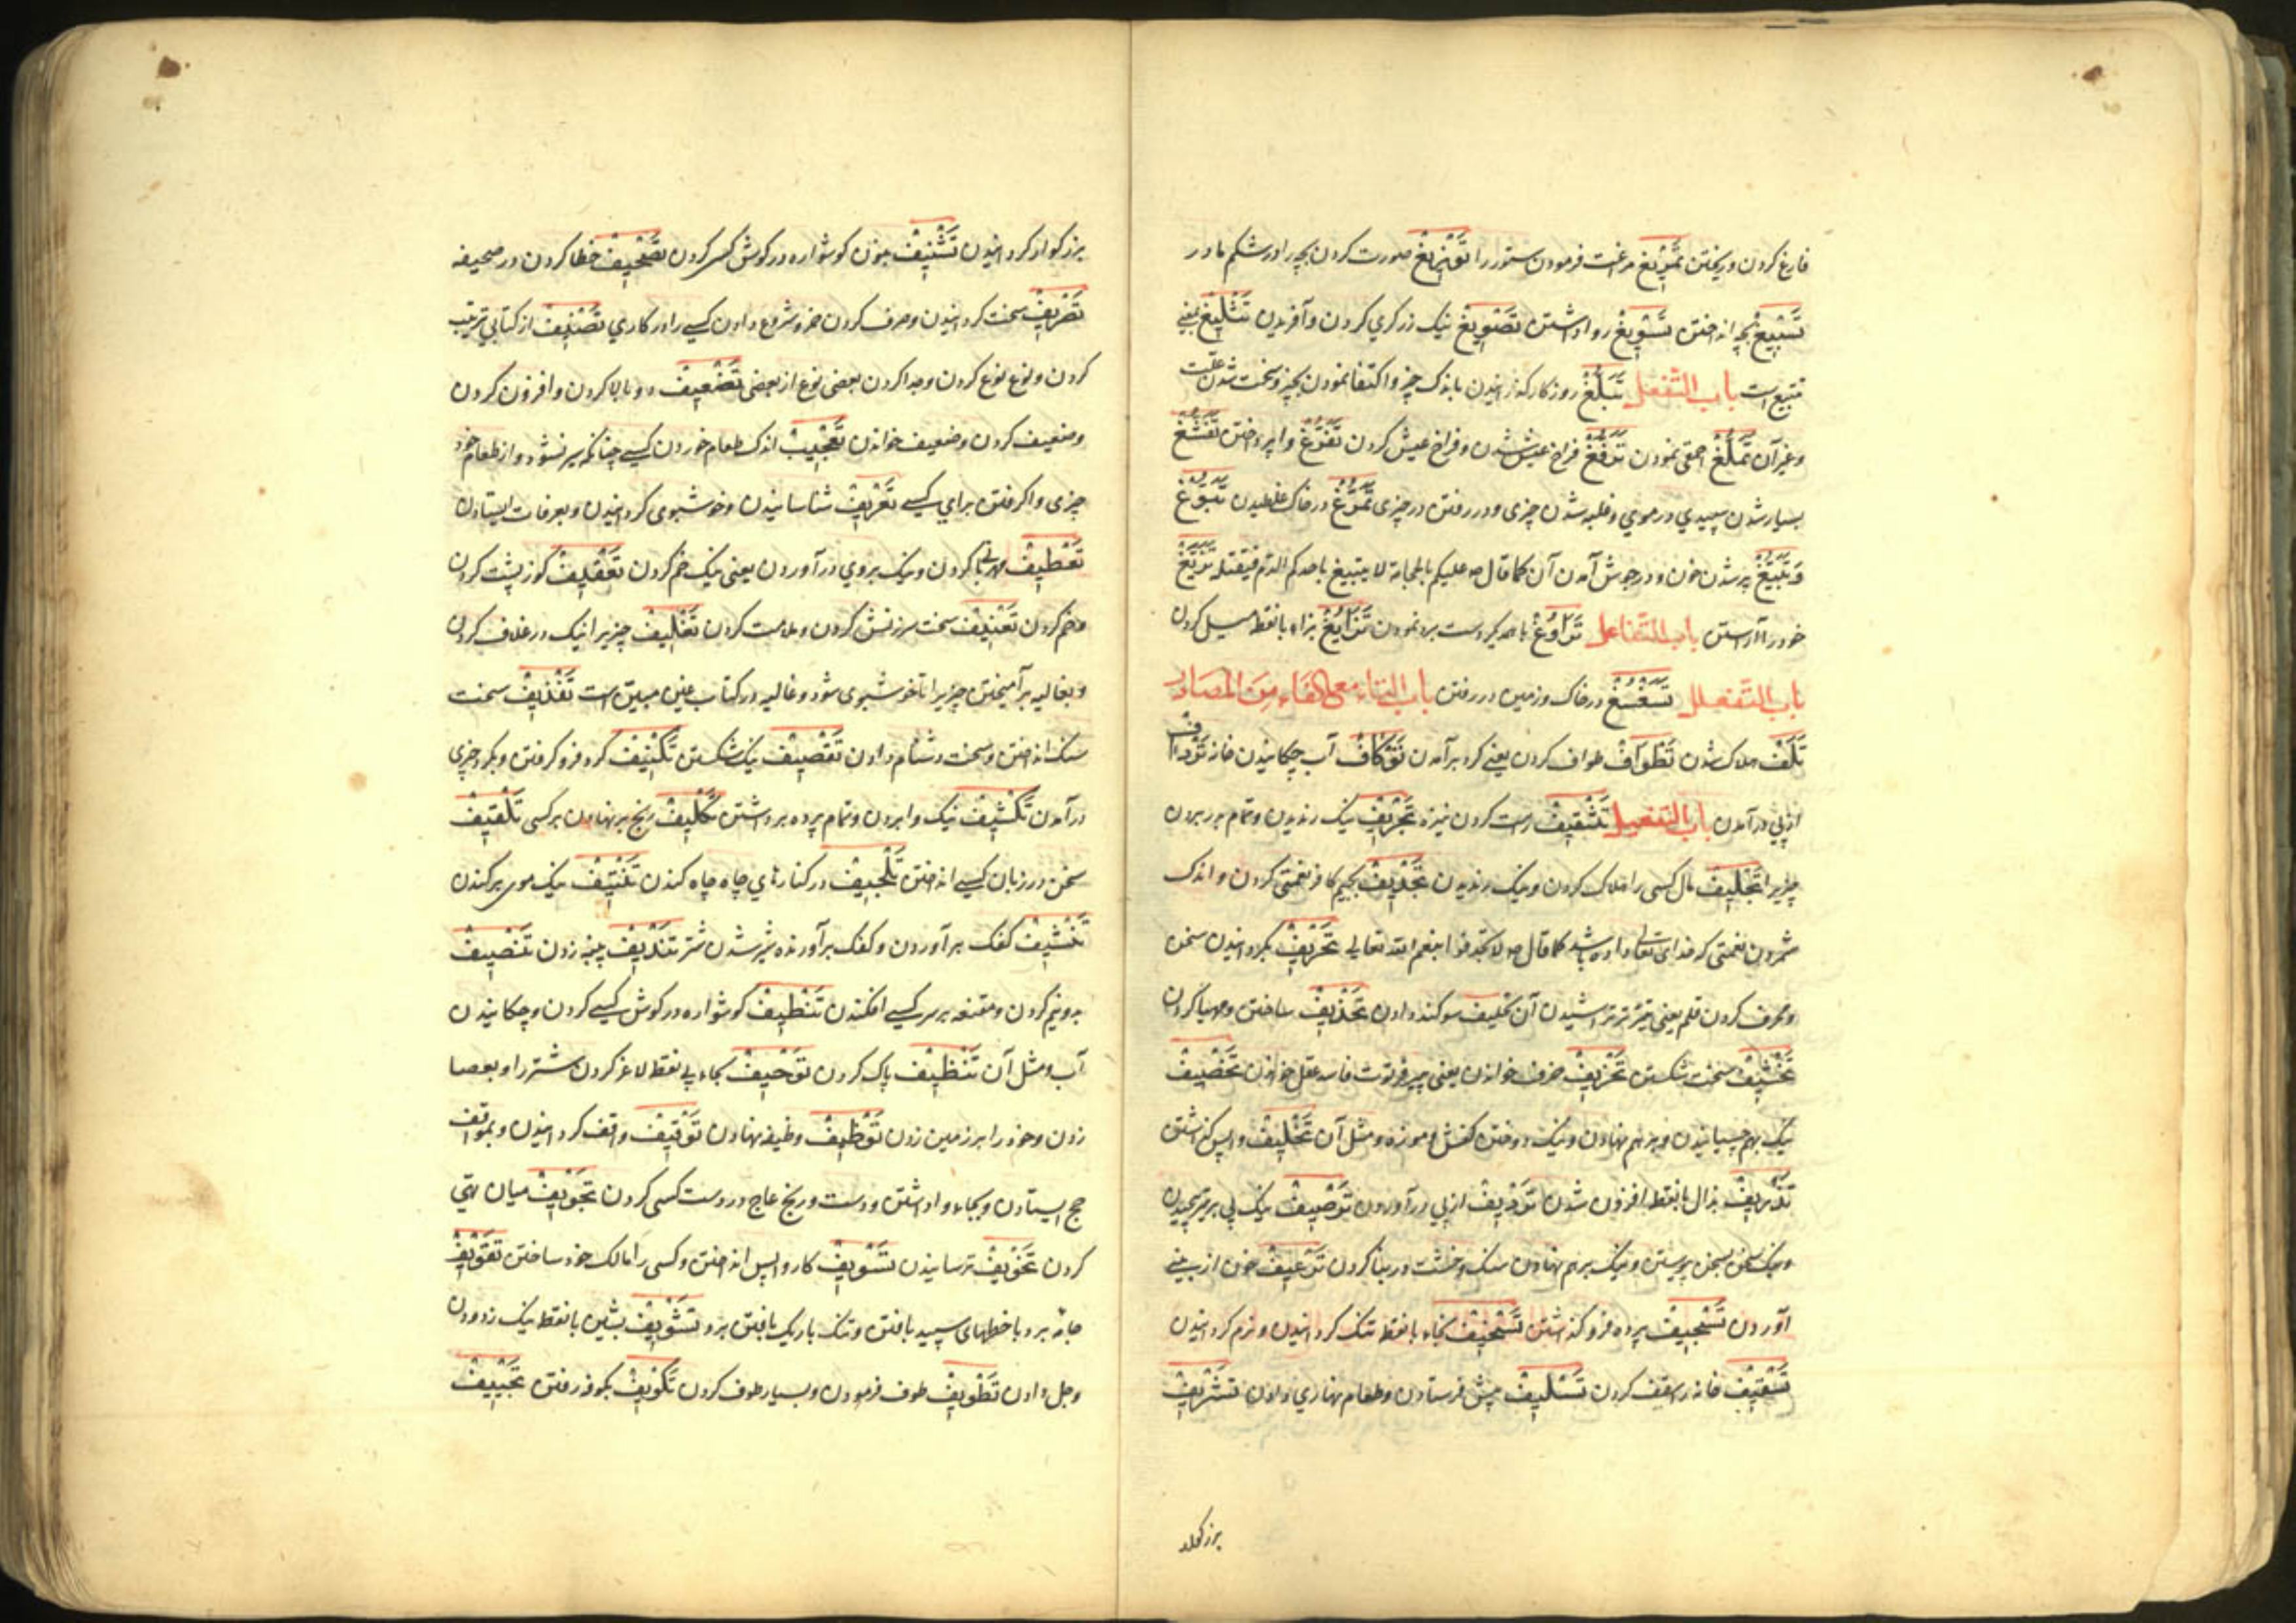 فارغ کردن و ریختن تَمْرِیْغ مراغت فرمودن ستور را تَفْرِیْغ صورت کردن بچه را در شکم مادر
تَسْبِیْغ بچه انداختن تَسْوِیْغ روا داشتن تَصْوِیْغ نیک زرکری کردن و آفریدن تَثْلِیْغ یعنی
باب التفعل تَبَلُّغ روزکار کذرانیدن باندک چیز و اکتفا نمودن بچیز و سخت شدن علت
و غیر آن تَمَلُّغ احمقی نمودن تَرَفُّغ فراخ عیش شدن و فراخ عیش کردن تَفَرُّغ وا پرداختن تَفَشُّغ
بسیار شدن سپیدی در موی و غلبه شدن چیزی و در رفتن در چیزی تَمَرُّغ در خاک غلطیدن تَبَوُّغ
وَ تَبَیُّغ پر شدن خون و در جوش آمدن آن کما قال علیکم بالحجامة لا یتبیغ باحدکم الدم فیقتله تَزَیُّغ
خود را آراستن باب التفاعل تَرَاوُغ با همدیکر دست برد نمودن تَزَایُغ بزاء با نقطه میل کردن
باب التفعلل تَسَغْسُغ در خاک و زمین در رفتن باب التاء مع الفاء من المصادر
تَلَف هلاک شدن تَطْوَاف طواف کردن یعنی کرد بر آمدن تَوْکَاف آب چکانیدن خانه
از پی در آمدن باب التفعیل تَثْقِیْف راست کردن نیزه تَجْرِیْف نیک رندیدن و تمام بردن
چیزی را تَجْلِیْف مال کسی را هلاک کردن و نیک رندیدن تَجْدِیْف بجیم کافر نعمتی کردن و اندک
شمردن نعمتی که خدای تعالی داده باشد کما قال لا تجدفوا بنعم الله تعالی تَحْرِیْف بکردانیدن سخن
و محرف کردن قلم یعنی تراشیدن آن تحلیف سوکند دادن تَحْذِیْف ساختن و مهیا کردن
سخت شکستن تَخْرِیْف خرف خواندن یعنی پیر فرتوت فاسد عقل خواندن تَخْصِیْف
نیک بهم چسپانیدن و بر هم نهادن و نیک دوختن کفش و موزه و مثل آن تَخْلِیْف واپس کذاشتن
تَذْرِیْف بذال با نقطه افزون شدن تَرْدِیْف از پی در آوردن تَرْصِیْف نیک پی بر تیر پیچیدن
و نیک سخن بسخن پیوستن و نیک بر هم نهادن سنک و خشت در بنا کردن تَرْعِیْف خون از بینی
آوردن تَسْجِیْف پرده فرو کذاشتن تَسْخِیْف بخاء با نقطه تنک کردانیدن و نرم کردانیدن
تَسْقِیْف خانه را سقف کردن تَسْلِیْف پیش فرستادن و طعام نهاری دادن تَشْرِیْف
بزرکوار کردانیدن تَشْنِیْف بنون کوشواره در کوش کسی کردن تَصْحِیْف خطا کردن در صحیفه
تَصْرِیْف سخت کردانیدن و صرف کردن خمر و شروع دادن کسی را در کاری تَصْنِیْف از کتابی ترتیب
کردن و نوع نوع کردن و جدا کردن بعضی نوع از بعضی تَضْعِیْف دو بالا کردن و افزون کردن
و ضعیف کردن و ضعیف خواندن اندک طعام خوردن کسی چنانکه سیر نشود و از طعام خود
چیزی وا کرفتن برای کسی تَعْرِیْف شناسانیدن و خوشبوی کردانیدن و بعرفات ایستادن
تَعْطِیْف کردن و نیک بروی در آوردن یعنی نیک خم کردن تَعْقِیْف کوز پشت کردن
و خم کردن تَعْنِیْف سخت سرزنش کردن و ملامت کردن تَغْلِیْف چیزی را نیک در غلاف کردن
و بغالیه بر آمیختن چیزی را تا خوشبوی شود و غالیه در کتاب عین مبین است تَقْذِیْف سخت
سنک انداختن و سخت دشنام دادن تَقْصِیْف نیک شکستن تَکْنِیْف کرد فرو کرفتن و بکرد چیزی
در آمدن تَکْشِیْف نیک وا بردن و تمام پرده برداشتن تَکْلِیْف رنج بر نهادن بر کسی تَلْقِیْف
سخن در زبان کسی انداختن تَلْجِیْف در کنارهای چاه چاه کندن تَنْتِیْف نیک موی بر کندن
تَنْشِیْف کفک بر آوردن و کفک بر آورنده شیر شدن شتر تَنْدِیْف پنبه زدن تَنْصِیْف
بدو نیم کردن و مقنعه بر سر کسی افکندن تَنْطِیْف کوشواره در کوش کسی کردن و چکانیدن
آب و مثل آن تَنْظِیْف پاک کردن تَوْحِیْف بحاء بی نقطه لاغر کردن شتر را و بعصا
زدن و خود را بر زمین زدن تَوْظِیْف وظیفه نهادن تَوْقِیْف واقف کردانیدن و بموقف
حج ایستادن و بجای وا داشتن و دست ورنج عاج در دست کسی کردن تَجْوِیْف میان تهی
کردن تَخْوِیْف ترسانیدن تَسْوِیْف کار واپس انداختن و کسی را مالک خود ساختن تَفْوِیْف
جامه برد با خطهای سپید بافتن و تنک باریک بافتن برد تَشْوِیْف بشین با نقطه نیک زدودن
و جلا دادن تَطْوِیْف طوف فرمودن و بسیار طوف کردن تَکْوِیْف بکوفه رفتن تَجْیِیْف